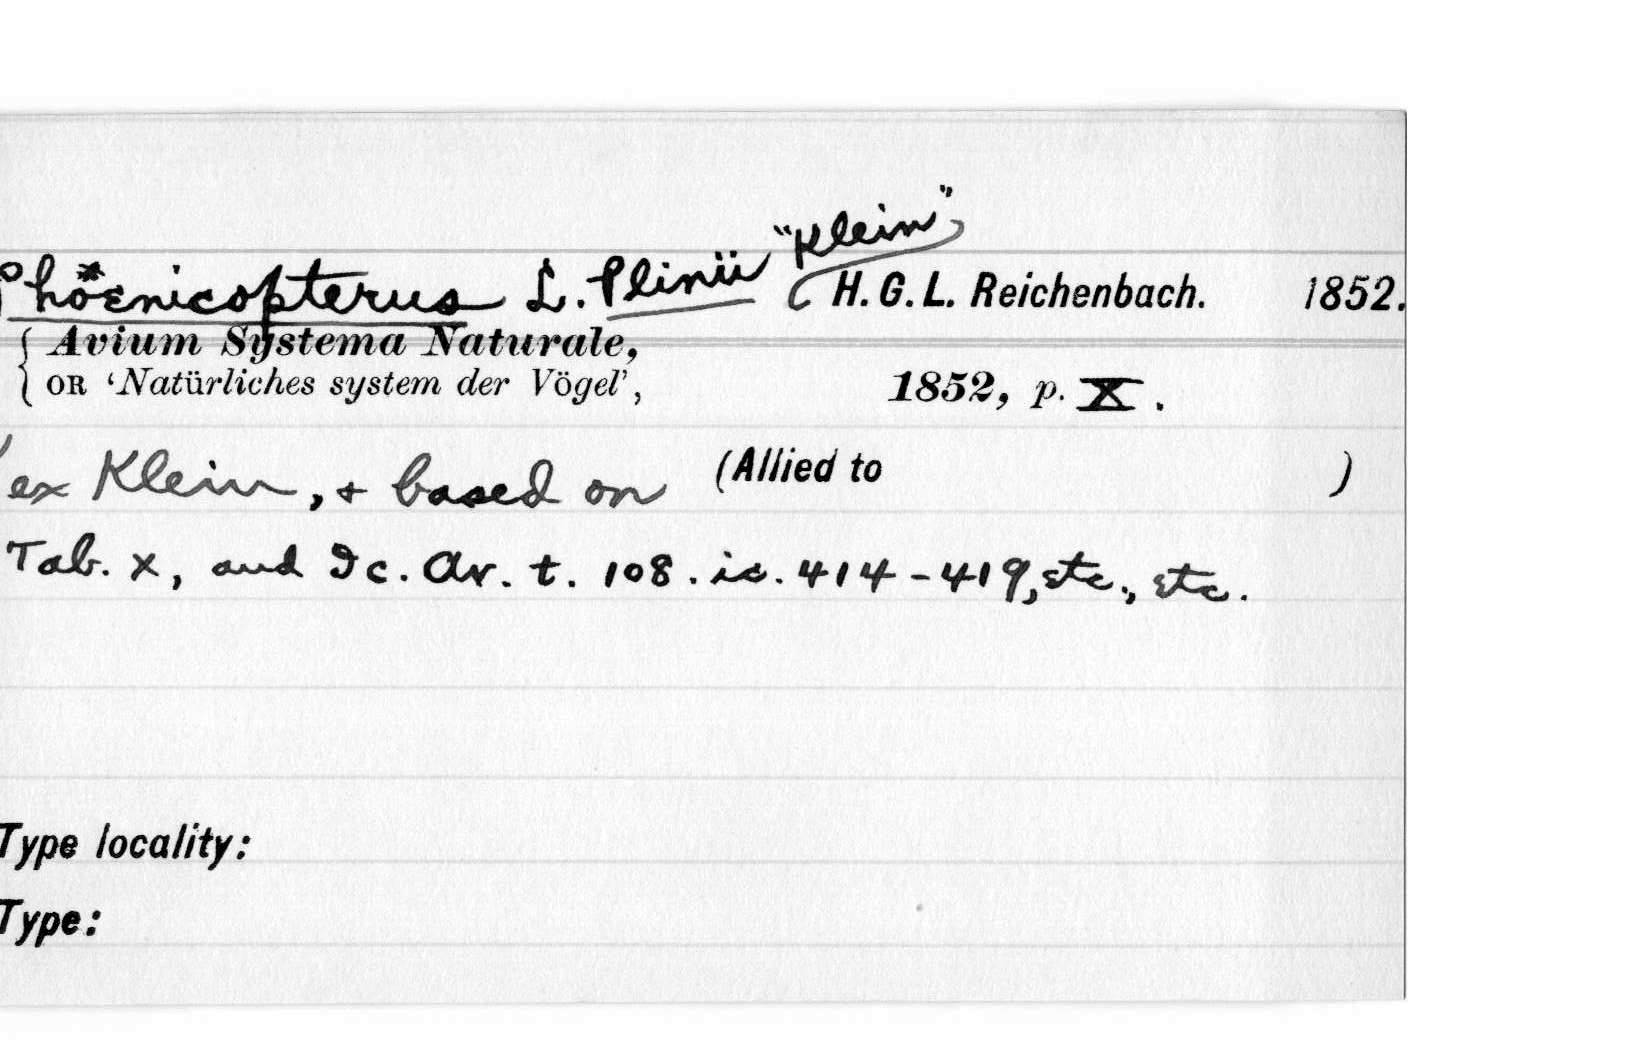 "Klein"
Phöenicopterus L. Plinii ( H. G. L. Reichenbach. 1852.
{ Avium Systema Naturale,
{ OR 'Natürliches system der Vögel', 1852, p. X.
ex Klein, + based on (Allied to )
Tab. X, and Ic. Av. t. 108. ic. 414-419, etc., etc.
Type locality:
Type: